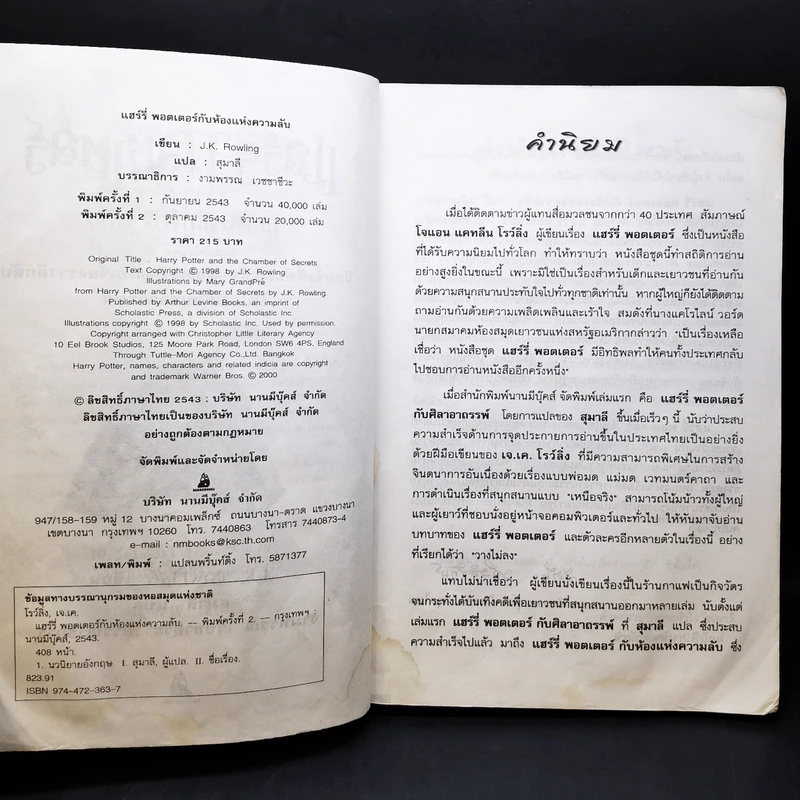 แฮร์รี่ พอตเตอร์กับห้องแห่งความลับ
เขียน : J.K. Rowling
แปล : สุมาลี
บรรณาธิการ : งามพรรณ เวชชาชีวะ
พิมพ์ครั้งที่ 1 : กันยายน 2543 จำนวน 40,000 เล่ม
พิมพ์ครั้งที่ 2 : ตุลาคม 2543 จำนวน 20,000 เล่ม
ราคา 215 บาท
Original Title : Harry Potter and the Chamber of Secrets
Text Copyright © 1998 by J.K. Rowling
Illustrations by Mary GrandPré
from Harry Potter and the Chamber of Secrets by J.K. Rowling.
Published by Arthur Levine Books, an imprint of
Scholastic Press, a division of Scholastic Inc.
Illustrations copyright © 1998 by Scholastic Inc. Used by permission.
Copyright arranged with Christopher Little Literary Agency
10 Eel Brook Studios, 125 Moore Park Road, London SW6 4PS, England
Through Tuttle-Mori Agency Co.,Ltd. Bangkok
Harry Potter, names, characters and related indicia are copyright
and trademark Warner Bros. © 2000
© ลิขสิทธิ์ภาษาไทย 2543 : บริษัท นานมีบุ๊คส์ จำกัด
ลิขสิทธิ์ภาษาไทยเป็นของบริษัท นานมีบุ๊คส์ จำกัด
อย่างถูกต้องตามกฎหมาย
จัดพิมพ์และจัดจำหน่ายโดย
บริษัท นานมีบุ๊คส์ จำกัด
947/158-159 หมู่ 12 บางนาคอมเพล็กซ์ ถนนบางนา-ตราด แขวงบางนา
เขตบางนา กรุงเทพฯ 10260 โทร. 7440863 โทรสาร 7440873-4
e-mail : nmbooks@ksc.th.com
เพลท/พิมพ์ : แปลนพริ้นท์ติ้ง โทร. 5871377
ข้อมูลทางบรรณานุกรมของหอสมุดแห่งชาติ
โรว์ลิ่ง, เจ.เค.
แฮร์รี่ พอตเตอร์กับห้องแห่งความลับ. -- พิมพ์ครั้งที่ 2. -- กรุงเทพฯ :
นานมีบุ๊คส์, 2543.
408 หน้า.
1. นวนิยายอังกฤษ. I. สุมาลี, ผู้แปล. II. ชื่อเรื่อง.
823.91
ISBN 974-472-363-7
คำนิยม
เมื่อได้ติดตามข่าวผู้แทนสื่อมวลชนจากกว่า 40 ประเทศ สัมภาษณ์
โจแอน แคทลีน โรว์ลิ่ง ผู้เขียนเรื่อง แฮร์รี่ พอตเตอร์ ซึ่งเป็นหนังสือ
ที่ได้รับความนิยมไปทั่วโลก ทำให้ทราบว่า หนังสือชุดนี้ทำสถิติการอ่าน
อย่างสูงยิ่งในขณะนี้ เพราะมิใช่เป็นเรื่องสำหรับเด็กและเยาวชนที่อ่านกัน
ด้วยความสนุกสนานประทับใจไปทั่วทุกชาติเท่านั้น หากผู้ใหญ่ก็ยังได้ติดตาม
ถามอ่านกันด้วยความเพลิดเพลินและเร้าใจ สมดังที่นางแคโรไลน์ วอร์ด
นายกสมาคมห้องสมุดเยาวชนแห่งสหรัฐอเมริกากล่าวว่า "เป็นเรื่องเหลือ
เชื่อว่า หนังสือชุด แฮร์รี่ พอตเตอร์ มีอิทธิพลทำให้คนทั้งประเทศกลับ
ไปชอบการอ่านหนังสืออีกครั้งหนึ่ง"
เมื่อสำนักพิมพ์นานมีบุ๊คส์ จัดพิมพ์เล่มแรก คือ แฮร์รี่ พอตเตอร์
กับศิลาอาถรรพ์ โดยการแปลของ สุมาลี ขึ้นเมื่อเร็วๆ นี้ นับว่าประสบ
ความสำเร็จด้านการจุดประกายการอ่านขึ้นในประเทศไทยเป็นอย่างยิ่ง
ด้วยฝีมือเขียนของ เจ.เค. โรว์ลิ่ง ที่มีความสามารถพิเศษในการสร้าง
จินตนาการอันเนื่องด้วยเรื่องแบบพ่อมด แม่มด เวทมนตร์คาถา และ
การดำเนินเรื่องที่สนุกสนานแบบ "เหนือจริง" สามารถโน้มน้าวทั้งผู้ใหญ่
และผู้เยาว์ที่ชอบนั่งอยู่หน้าจอคอมพิวเตอร์และทั่วไป ให้หันมาจับอ่าน
บทบาทของ แฮร์รี่ พอตเตอร์ และตัวละครอีกหลายตัวในเรื่องนี้ อย่าง
ที่เรียกได้ว่า "วางไม่ลง"
แทบไม่น่าเชื่อว่า ผู้เขียนนั่งเขียนเรื่องนี้ในร้านกาแฟเป็นกิจวัตร
จนกระทั่งได้บันเทิงคดีเพื่อเยาวชนที่สนุกสนานออกมาหลายเล่ม นับตั้งแต่
เล่มแรก แฮร์รี่ พอตเตอร์ กับศิลาอาถรรพ์ ที่ สุมาลี แปล ซึ่งประสบ
ความสำเร็จไปแล้ว มาถึง แฮร์รี่ พอตเตอร์ กับห้องแห่งความลับ ซึ่ง